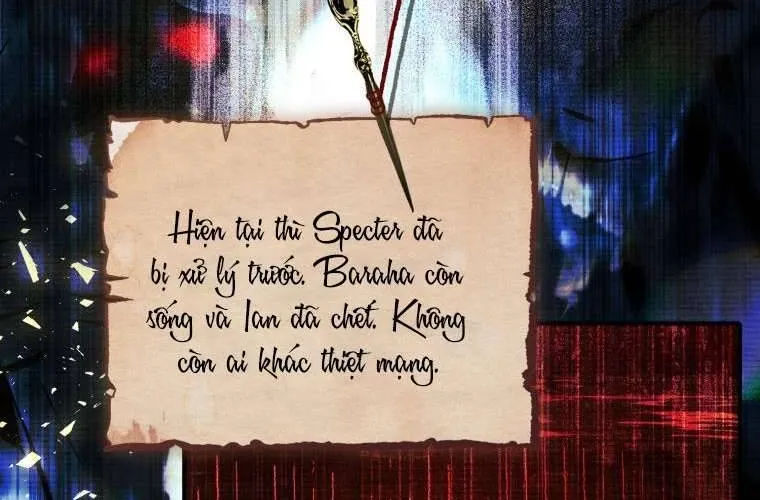 Hiện tại thì Specter đã
bị xử lý trước. Baraha còn
sống và Ian đã chết. Không
còn ai khác thiệt mạng.